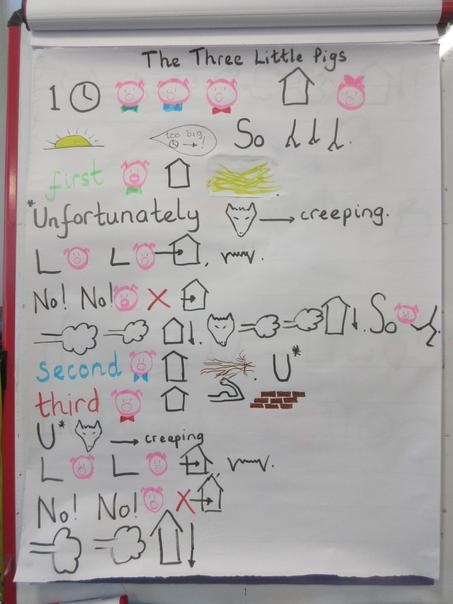 The Three Little Pigs
1
too big!
So
first
*Unfortunately creeping.
L L
No! No!
So
second U*
third
U* creeping
L L
No! No!